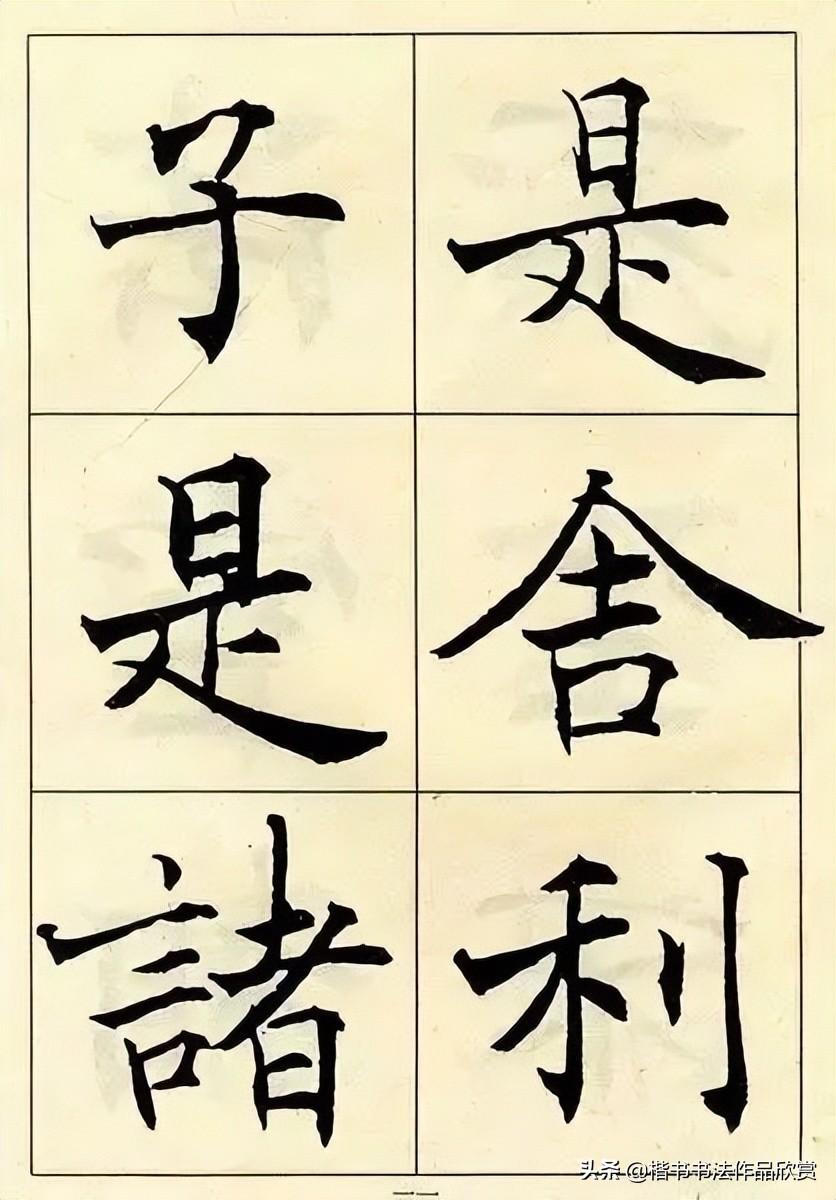 是舍利
子是諸
一一
头条 @楷书书法作品欣赏